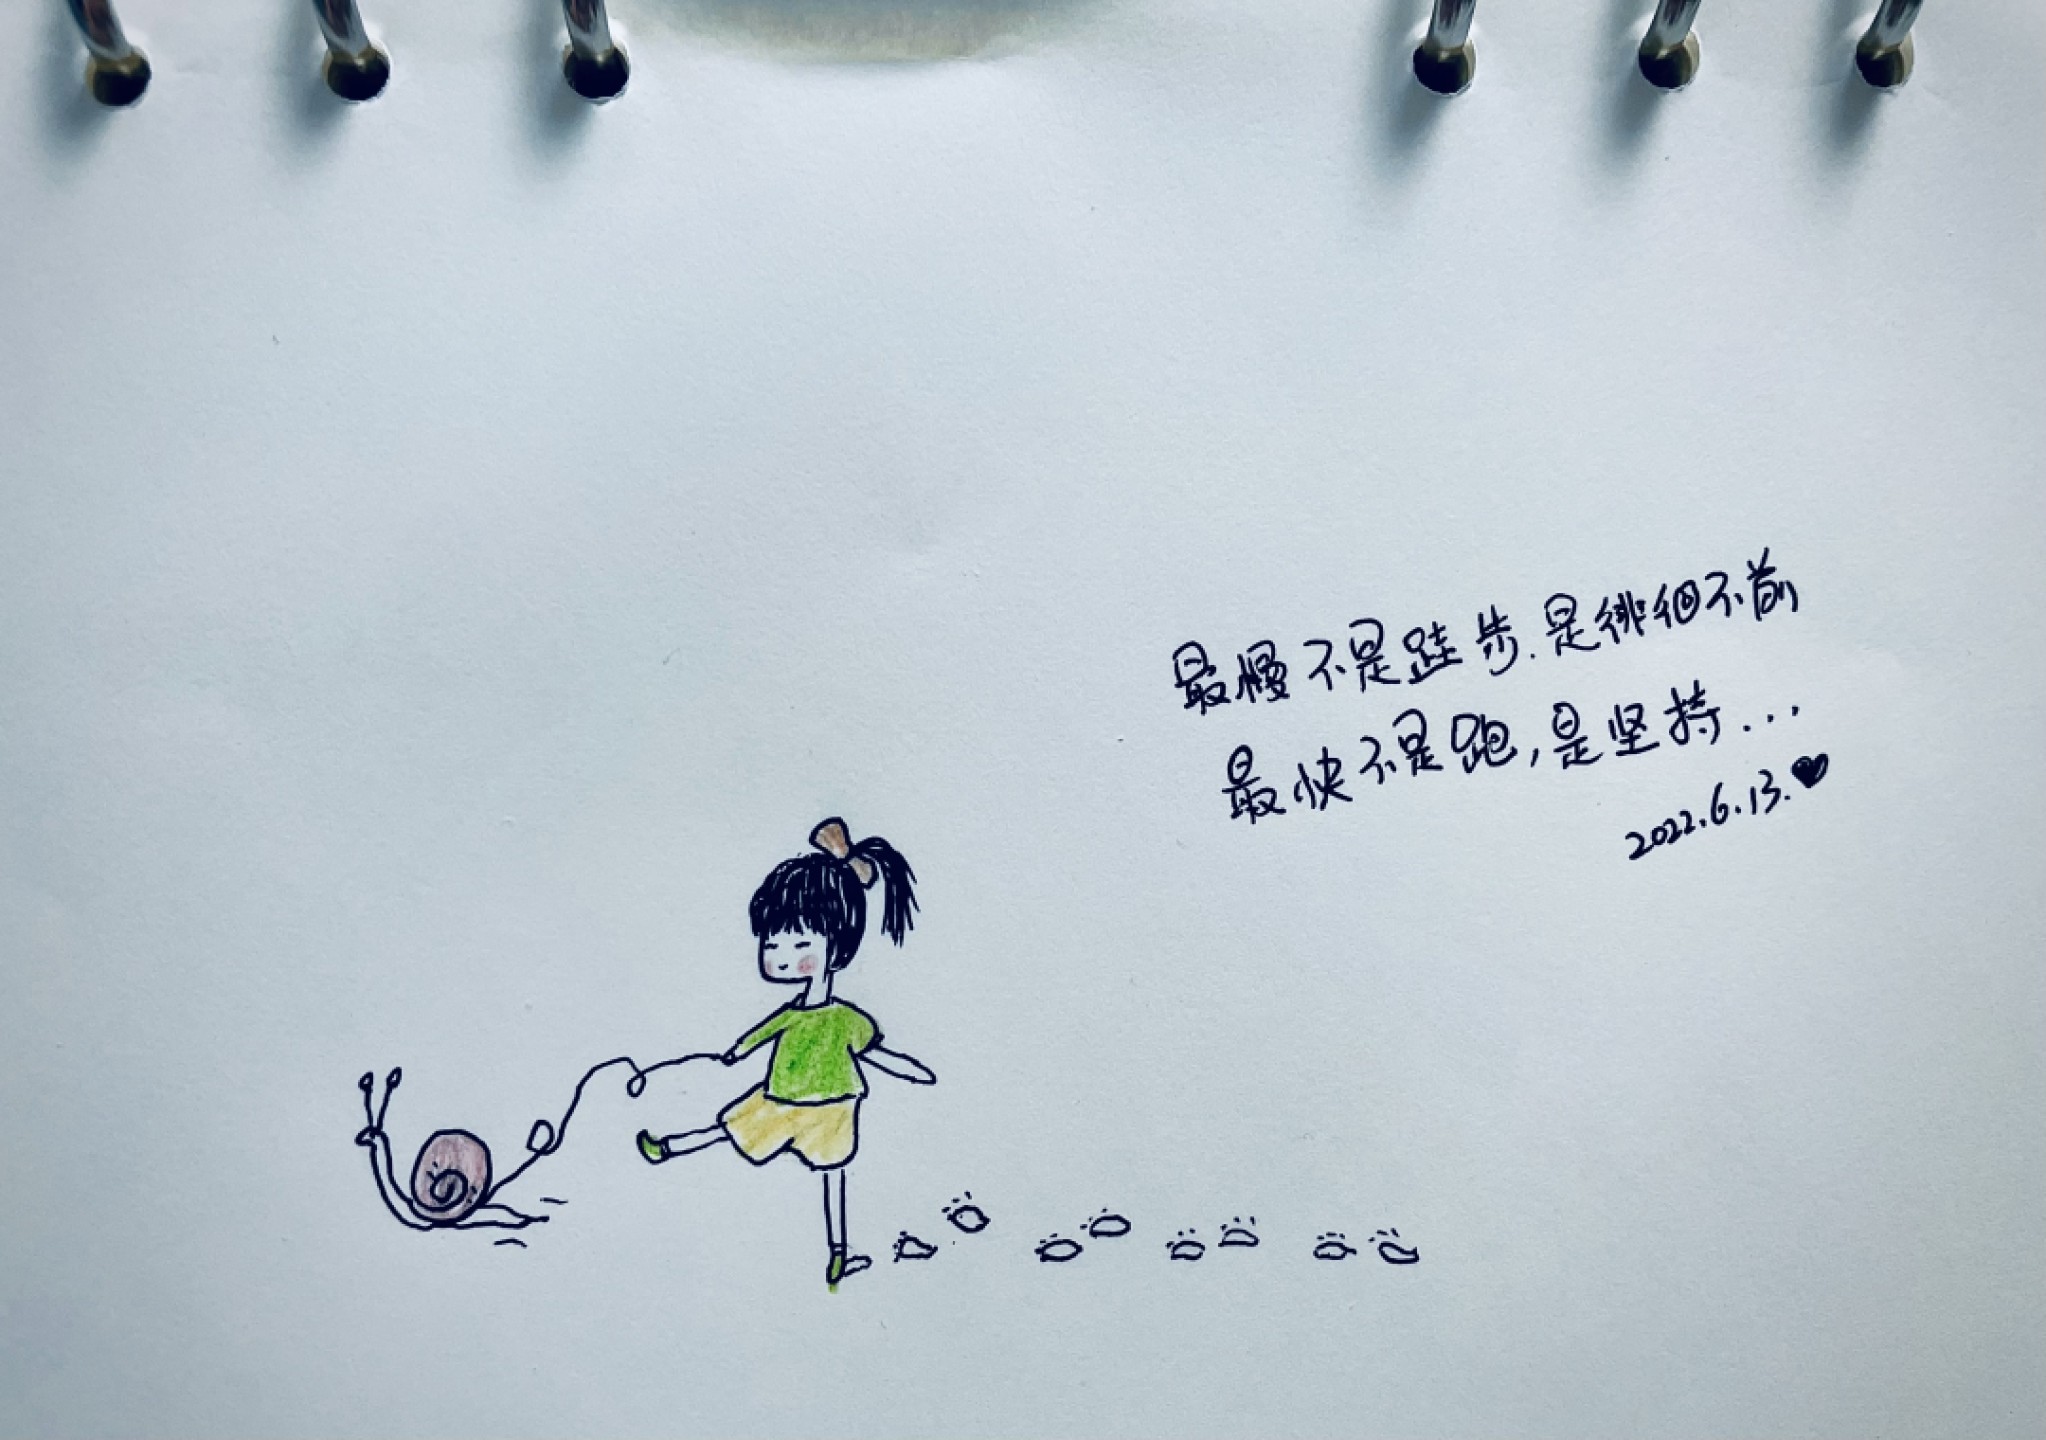 最慢不是跬步.是徘徊不前
最快不是跑,是坚持...
2022.6.13.♥